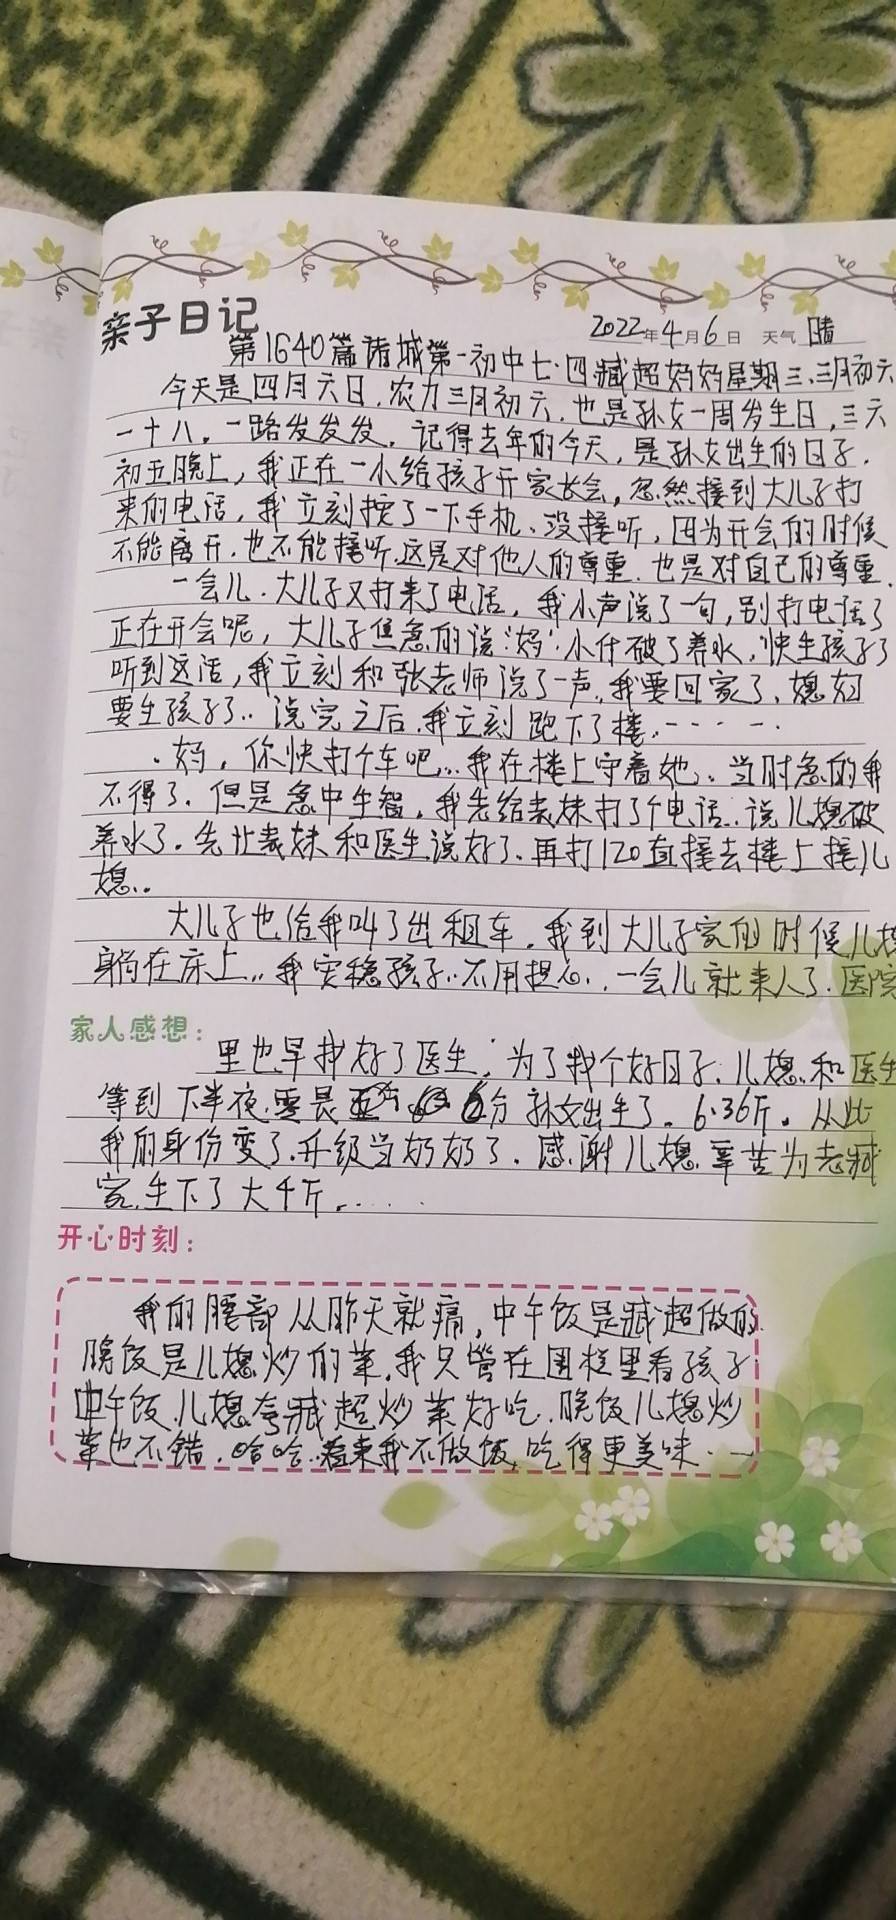 亲子日记
2022年4月6日 天气 晴
第1640篇诸城第一初中七·四臧超妈妈星期三、三月初六
今天是四月六日,农力三月初六,也是孙女一周岁生日,三六
一十八,一路发发发,记得去年的今天,是孙女出生的日子,
初五晚上,我正在一小给孩子开家长会,忽然接到大儿子打
来的电话,我立刻按了一下手机、没接听,因为开会的时候
不能离开,也不能接听,这是对他人的尊重,也是对自己的尊重,
一会儿,大儿子又打来了电话,我小声说了一句,别打电话了
正在开会呢,大儿子焦急的说:"妈"小什破了养水,快生孩子了
听到这话,我立刻和张老师说了一声,我要回家了,媳妇
要生孩子了..说完之后,我立刻跑下了楼,-----
.妈,你快打个车吧...我在楼上守着她..当时急的我
不得了,但是急中生智,我先给表妹打了个电话..说儿媳破
养水了,先让表妹和医生说好了、再打120直接去楼上接儿
媳..
大儿子也给我叫了出租车,我到大儿子家的时候儿媳
躺在床上..我安稳孩子..不用担心..一会儿就来人了,医院
家人感想:
里也早找好了医生,为了找个好日子,儿媳和医生
等到下半夜,零晨 分孙女出生了。6·36斤。从此
我的身份变了,升级当奶奶了,感谢儿媳辛苦为老臧
家生下了大千斤.....
开心时刻:
我的腰部从昨天就痛,中午饭是臧超做的
晚饭是儿媳炒的菜,我只管在围栏里看孩子
中午饭儿媳夸臧超炒菜好吃,晚饭儿媳炒
菜也不错,哈哈..看来我不做饭,吃得更美味..一